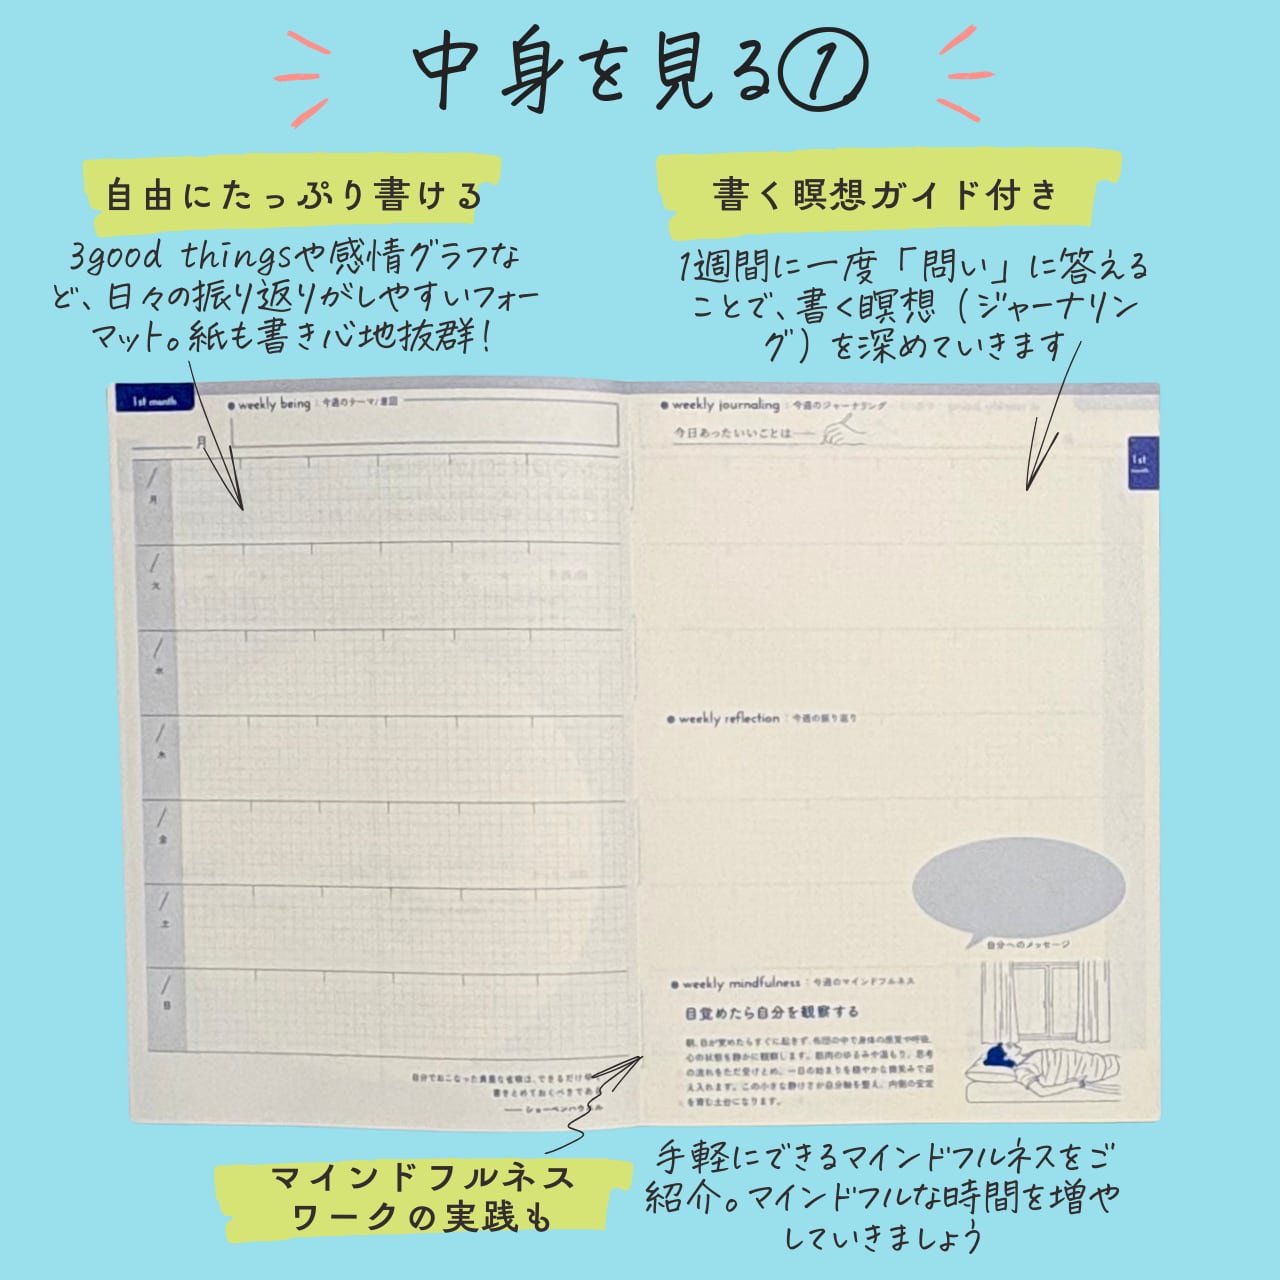 中身を見る①
自由にたっぷり書ける
3good thingsや感情グラフな
ど、日々の振り返りがしやすいフォー
マット。紙も書き心地抜群!
書く瞑想ガイド付き
1週間に一度「問い」に答える
ことで、書く瞑想(ジャーナリン
グ)を深めていきます
1st month
weekly being：今週のテーマ/意図
月
/
月
/
火
/
水
/
木
/
金
/
土
/
日
自分でおこなった貴重な省察は、できるだけ早く
書きとめておくべきである
── ショーペンハウエル
weekly journaling：今週のジャーナリング
今日あったいいことは──
1st
month
weekly reflection：今週の振り返り
自分へのメッセージ
weekly mindfulness：今週のマインドフルネス
目覚めたら自分を観察する
朝、目が覚めたらすぐに起きず、布団の中で身体の感覚や呼吸、
心の状態を静かに観察します。筋肉のゆるみや温もり、思考
の流れをただ受けとめ、一日の始まりを穏やかな微笑みで迎
え入れます。この小さな静けさが自分軸を整え、内側の安定
を育む土台になります。
マインドフルネス
ワークの実践も
手軽にできるマインドフルネスをご
紹介。マインドフルな時間を増や
していきましょう